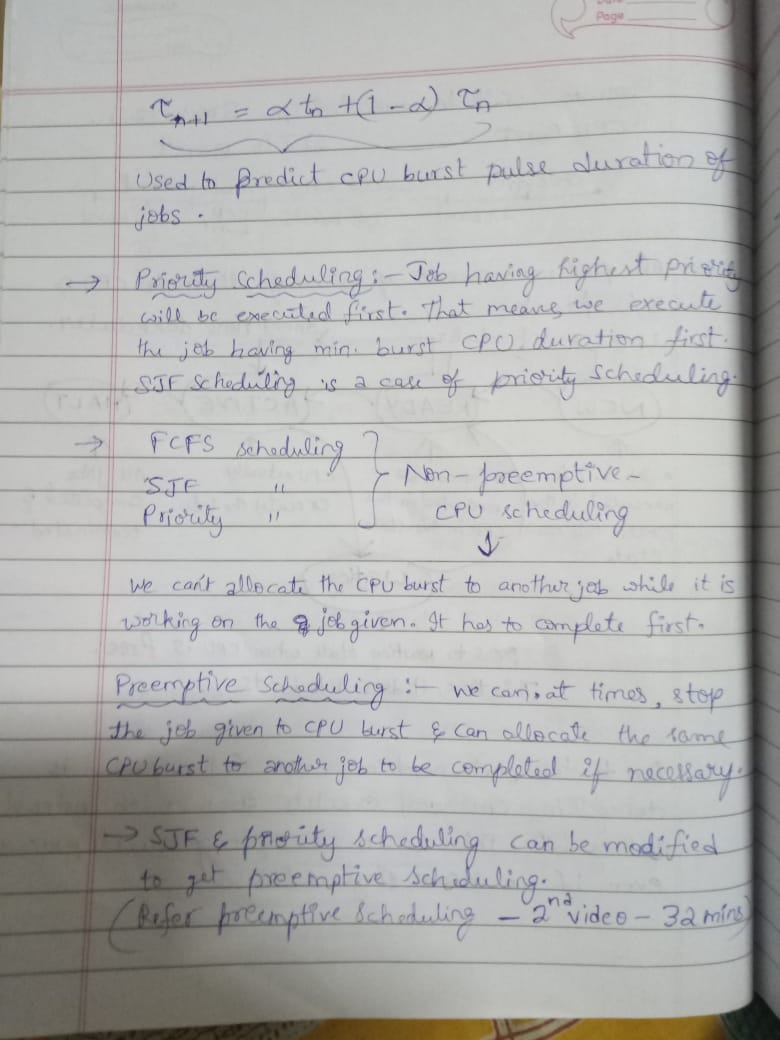 Page
τn+1 = αtn + (1-α) τn
Used to predict CPU burst pulse duration of
jobs.
→ Priority Scheduling :- Job having highest priority
will be executed first. That means, we execute
the job having min. burst CPU duration first.
SJF scheduling is a case of priority scheduling.
→ FCFS scheduling
SJF "
Priority "
} Non-preemptive-
CPU scheduling
↓
We can't allocate the CPU burst to another job while it is
working on the job given. It has to complete first.
Preemptive Scheduling :- We can, at times, stop
the job given to CPU burst & can allocate the same
CPU burst to another job to be completed if necessary.
→ SJF & priority scheduling can be modified
to get preemptive scheduling.
(Refer preemptive scheduling - 2nd video - 32 mins)